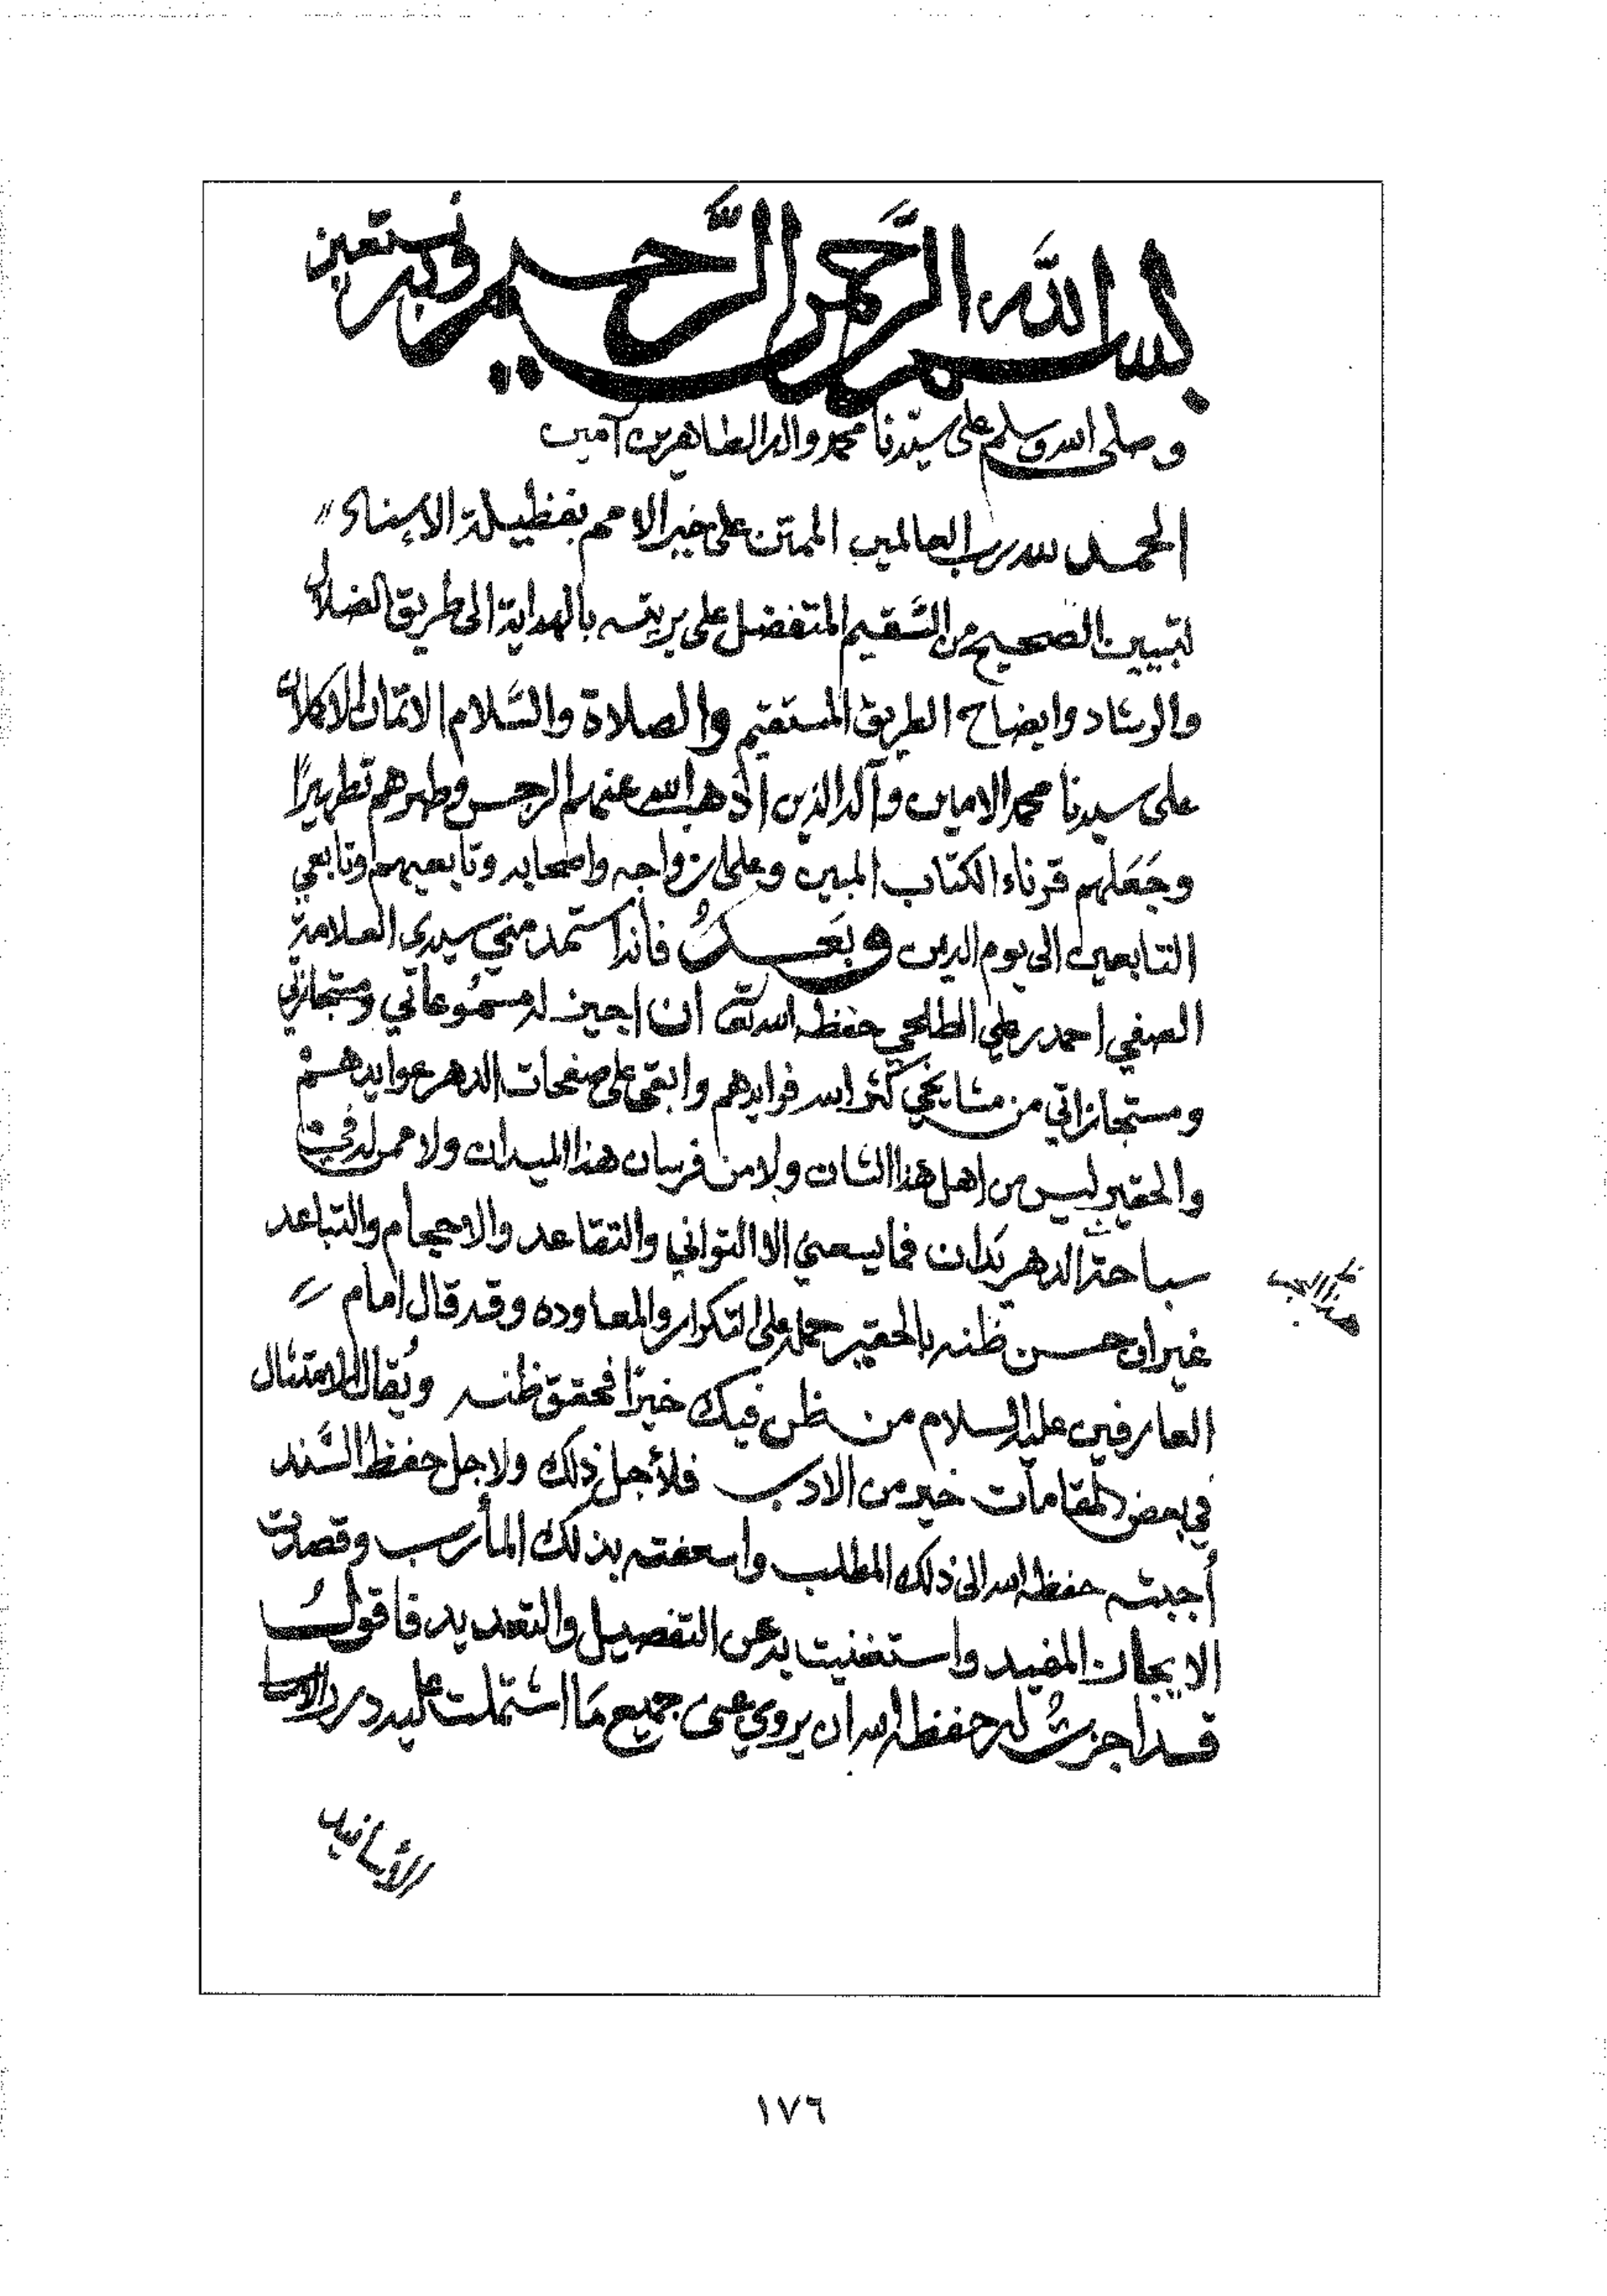 بسم الله الرحمن الرحيم وبه نستعين
وصلى الله وسلم على سيدنا محمد واله الطاهرين آمين
الحمد لله رب العالمين الممتن على خير الامم بفظيلة الإسناد
لتبيين الصحيح من السَّقيم المتفضل على بريته بالهداية الى طريق
والرشاد وايضاح الطريق المستقيم والصلاة والسَّلام الاتمان الاكملان
على سيدنا محمد الامين وآله الذين اذهب الله عنهم الرجس وطهرهم تطهيرًا
وجَعَلهم قرناء الكتاب المبين وعلى ازواجه واصحابه وتابعيهم وتابعي
التابعين الى يوم الدين وبَعــدُ فانه استمد مني سيدي العلامة
الصفي احمد بن علي الطلحي حفظه الله تعالى ان اجيز له مسموعاتي ومستجازاتي
ومستجازاتي من مشايخي كثر الله فوايدهم وابقى على صفحات الدهر عوايدهم
والحقير ليس من اهل هذا الشان ولا من فرسان هذا الميدان ولا ممن له في
سباحة الدهر يَدان فما يسعني الا التواني والتقاعد والاحجام والتباعد
هذا البحر
غير ان حسن ظنه بالحقير حمله على التكرار والمعاوده وقد قال امام
العارفين عليه السلام من ظن فيك خيرًا فحقق ظنه ويُقال الامتثال
في بعض المقامات خير من الادب فلأجل ذلك ولاجل حفظ السَّند
أجبته حفظه الله الى ذلك المطلب واسعفته بذلك المأرب وقصدت
الايجاز المفيد واستغنيت به عن التفصيل والتعديد فاقولُ
قد اجزتُ له حفظه الله ان يروي عني جميع مَا اشتملت عليه درر
الأسانيد
١٧٦